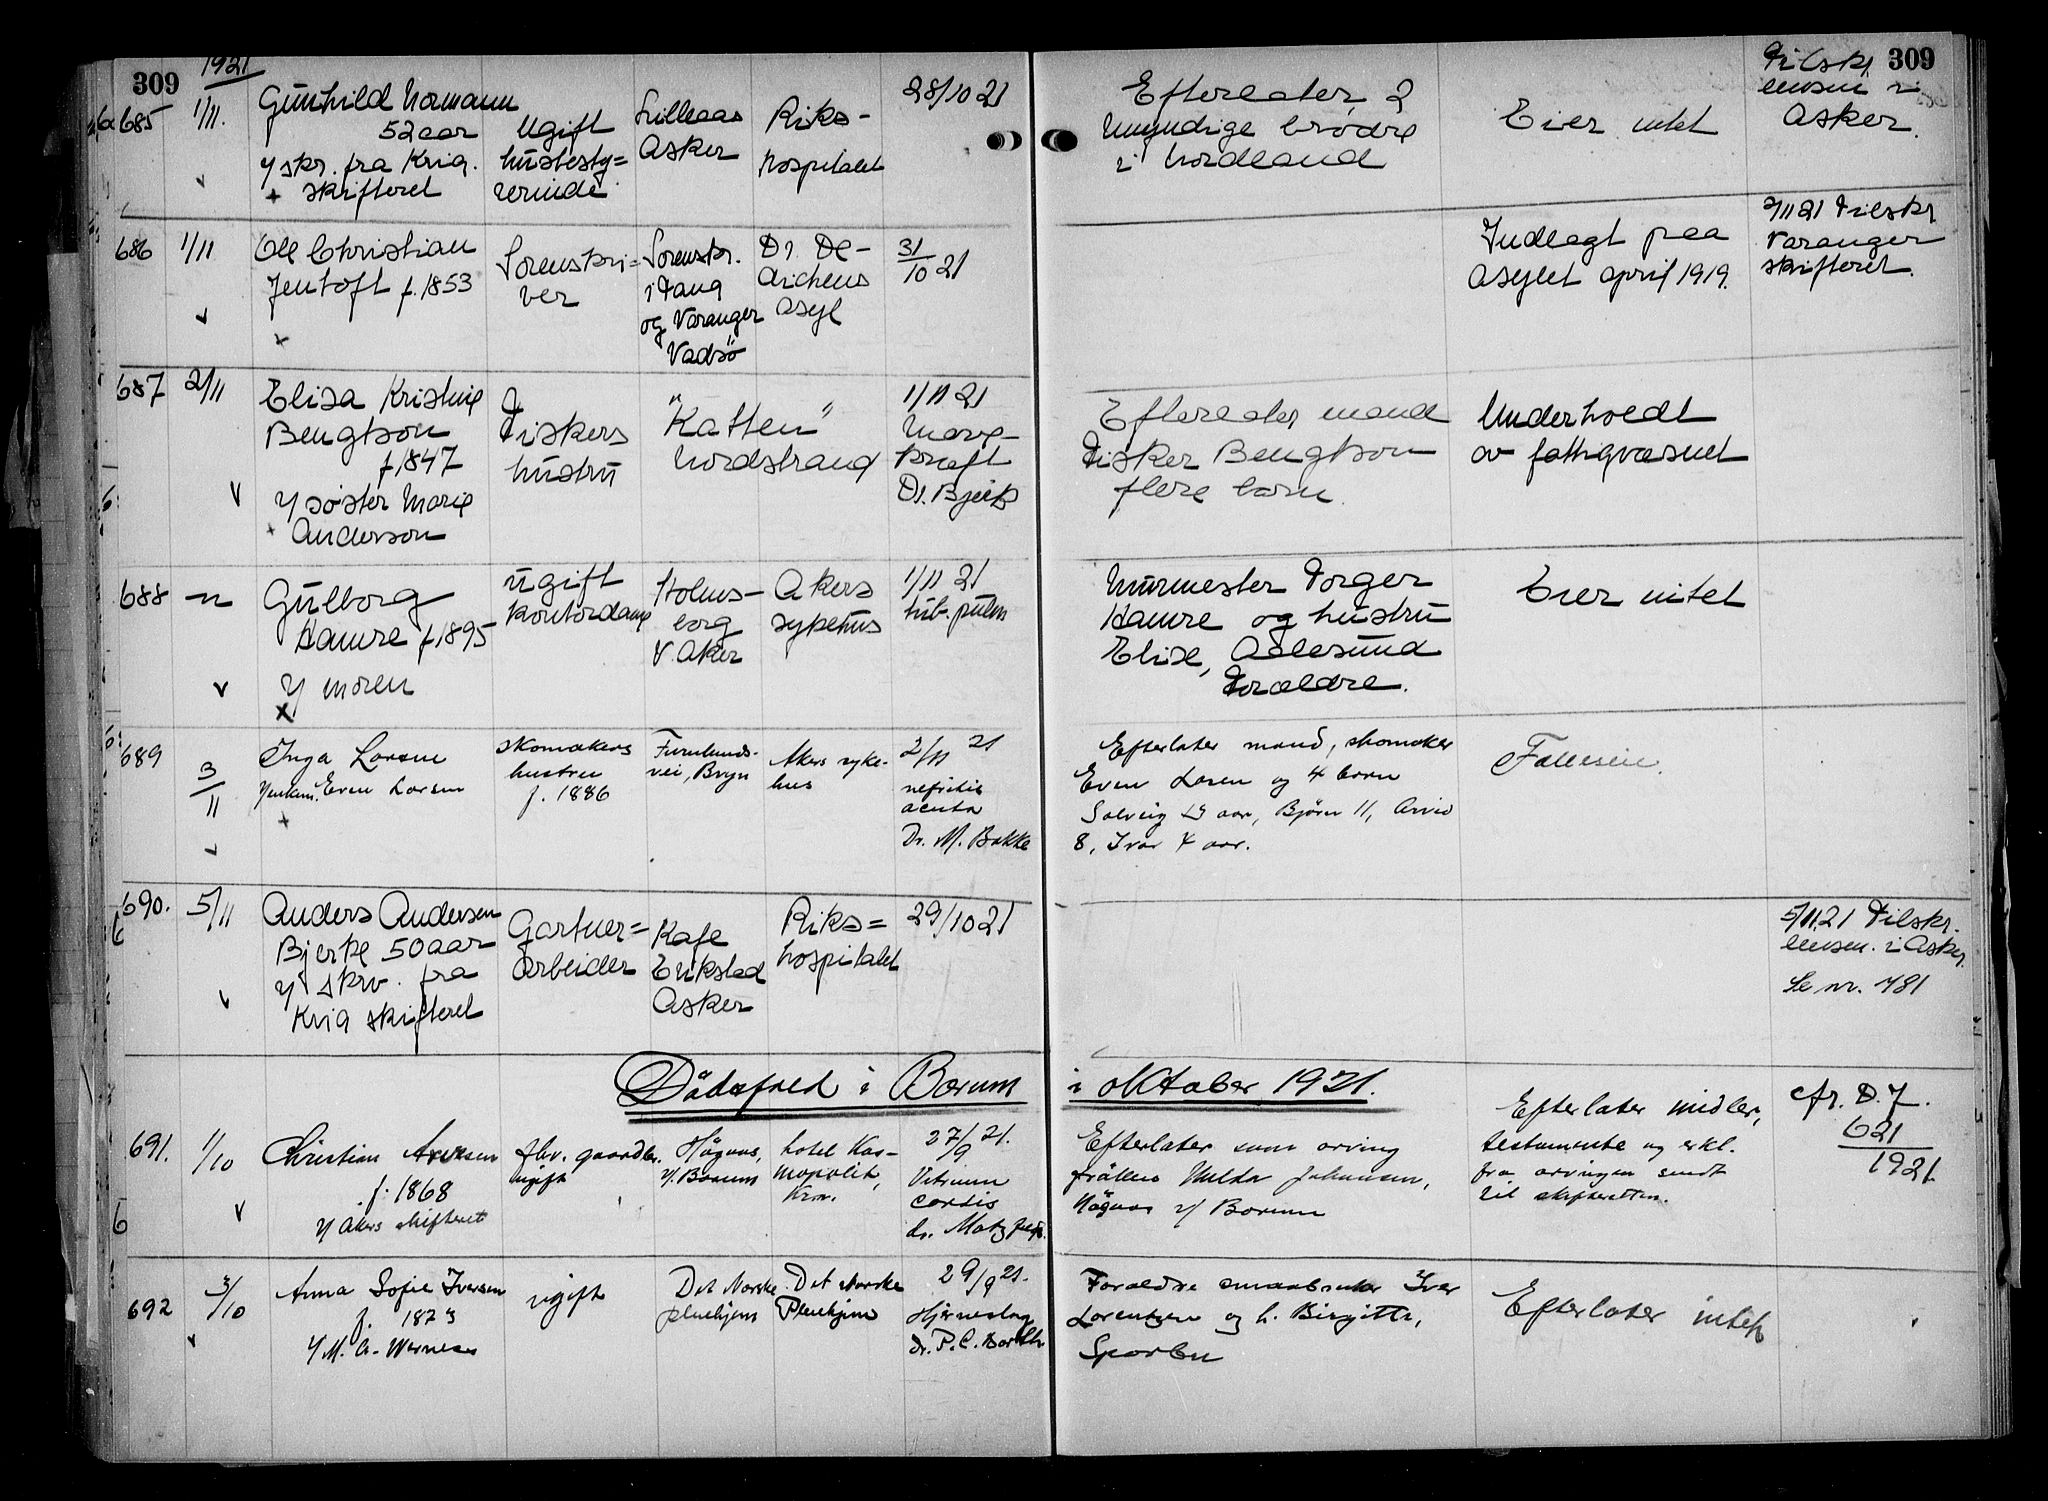 309
1921
309
685
1/11.
Gunhild Normann
52 aar
v/ skr. fra Kria.
skifteret
Ugift
husbesty=
rerinde
Lilleaas
Asker
Riks-
hospitalet
28/10 21
Efterlater 2
umyndige brødre
i Nordland
Eier intet
Tilskr.
lensm. i
Asker.
686
1/11
Ole Christian
Jentoft f. 1853
Sorenskri=
ver
Sorenskr.
i Tana
og Varanger
Vadsö
Dr. De-
dichens
asyl
31/10 21
Indlagt paa
asylet april 1919.
2/11 21 Tilskr
Varanger
skifteret.
687
2/11
Elisa Kristine
Bengtson
f 1847
v/ søster Marie
Anderson
Fiskers
hustru
"Katten"
Nordstrand
1/11 21
Mave-
kræft
Dr. Bjerke
Efterlater mand
Fisker Bengtson
flere barn.
Underholdt
av fattigvæsnet
688
Gulborg
Hamre f 1895
v/ moren
x
ugift
kontordame
Holms-
borg
V. Aker
Akers
sykehus
1/11 21
tub. pulm
Murmester Torger
Hamre og hustru
Elise, Aalesund
Forældre.
Eier intet
689
3/11
Inga Larsen
v/enkem. Even Larsen
skomakers
hustru
f. 1886
Furulunds-
vei, Bryn
Akers syke-
hus
2/11 21
nefritis
acuta
Dr. M. Bakke
Efterlater mand, skomaker
Even Larsen og 4 barn
Solveig 13 aar, Bjørn 11, Arvid
8, Ivar 4 aar.
Fælleseie.
690.
5/11
Anders Andersen
Bjerke 50 aar
v/ skrv. fra
Kria skifteret
Gartner=
arbeider
Kafe
Erikstad
Asker
Riks=
hospitalet
29/10 21
5/11.21 Tilskr.
lensm. i Asker.
Se nr. 781
Dödsfald i Bærum
i oktober 1921.
691.
1/10
Christian Aversen
f. 1868
v/ Akers skifteret
fhv. gaardbr.
ugift
Högaas,
v/ Bærum
hotel Kos-
mopolit,
Kra.
27/9 21.
Vitium
cordis
Efterlater som arving
frøken Hulda Johansen,
Högaas v/ Bærum
Efterlater midler,
testamente og erkl.
fra arvingen sendt
til skifteretten.
cfr. D. J.
621
1921.
692
3/10
Anna Sofie Iversen
f. 1873
Ugift
Det Norske
Pleiehjem
Det Norske
Pleiehjem
29/9 21.
Hjerneslag
dr. P. C. Barth
Forældre smaabruker Iver
Lorentzen og h. Birgitte,
Sparbu
Efterlater intet